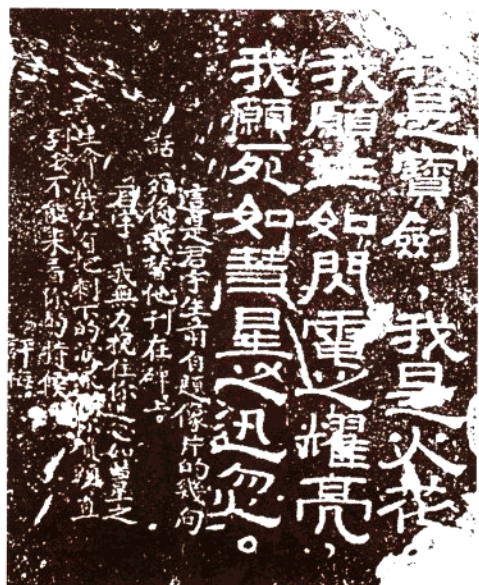 我是寶劍，我是火花
我願生如閃電之耀亮，
我願死如彗星之迅忽。
這是君宇生前自題像片的幾句
話，死後我替他刊在碑上。
君宇！我無力挽住你迅忽如彗星之
生命，我只有把剩下的淚流到你墳頭，直
到我不能來看你的時候。
評梅